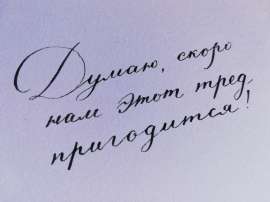 Думаю, скоро
нам этот тред
пригодится!